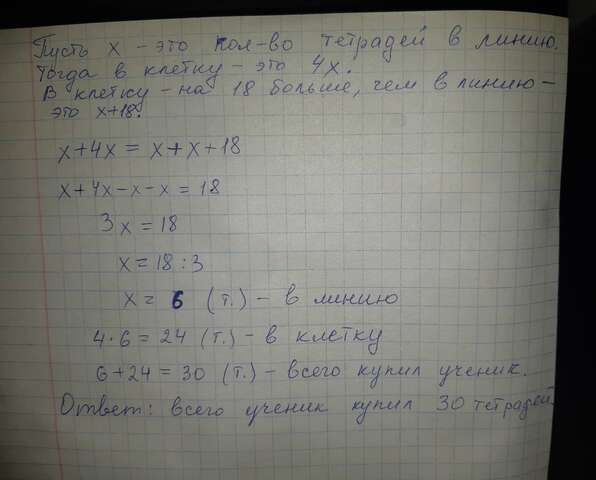 Пусть х - это кол-во тетрадей в линию.
Тогда в клетку - это 4х.
В клетку - на 18 больше, чем в линию -
это х+18.
х+4х = х+х+18
х+4х-х-х = 18
3х = 18
х = 18:3
х = 6 (т.) - в линию
4·6 = 24 (т.) - в клетку
6+24 = 30 (т.) - всего купил ученик.
Ответ: всего ученик купил 30 тетрадей.